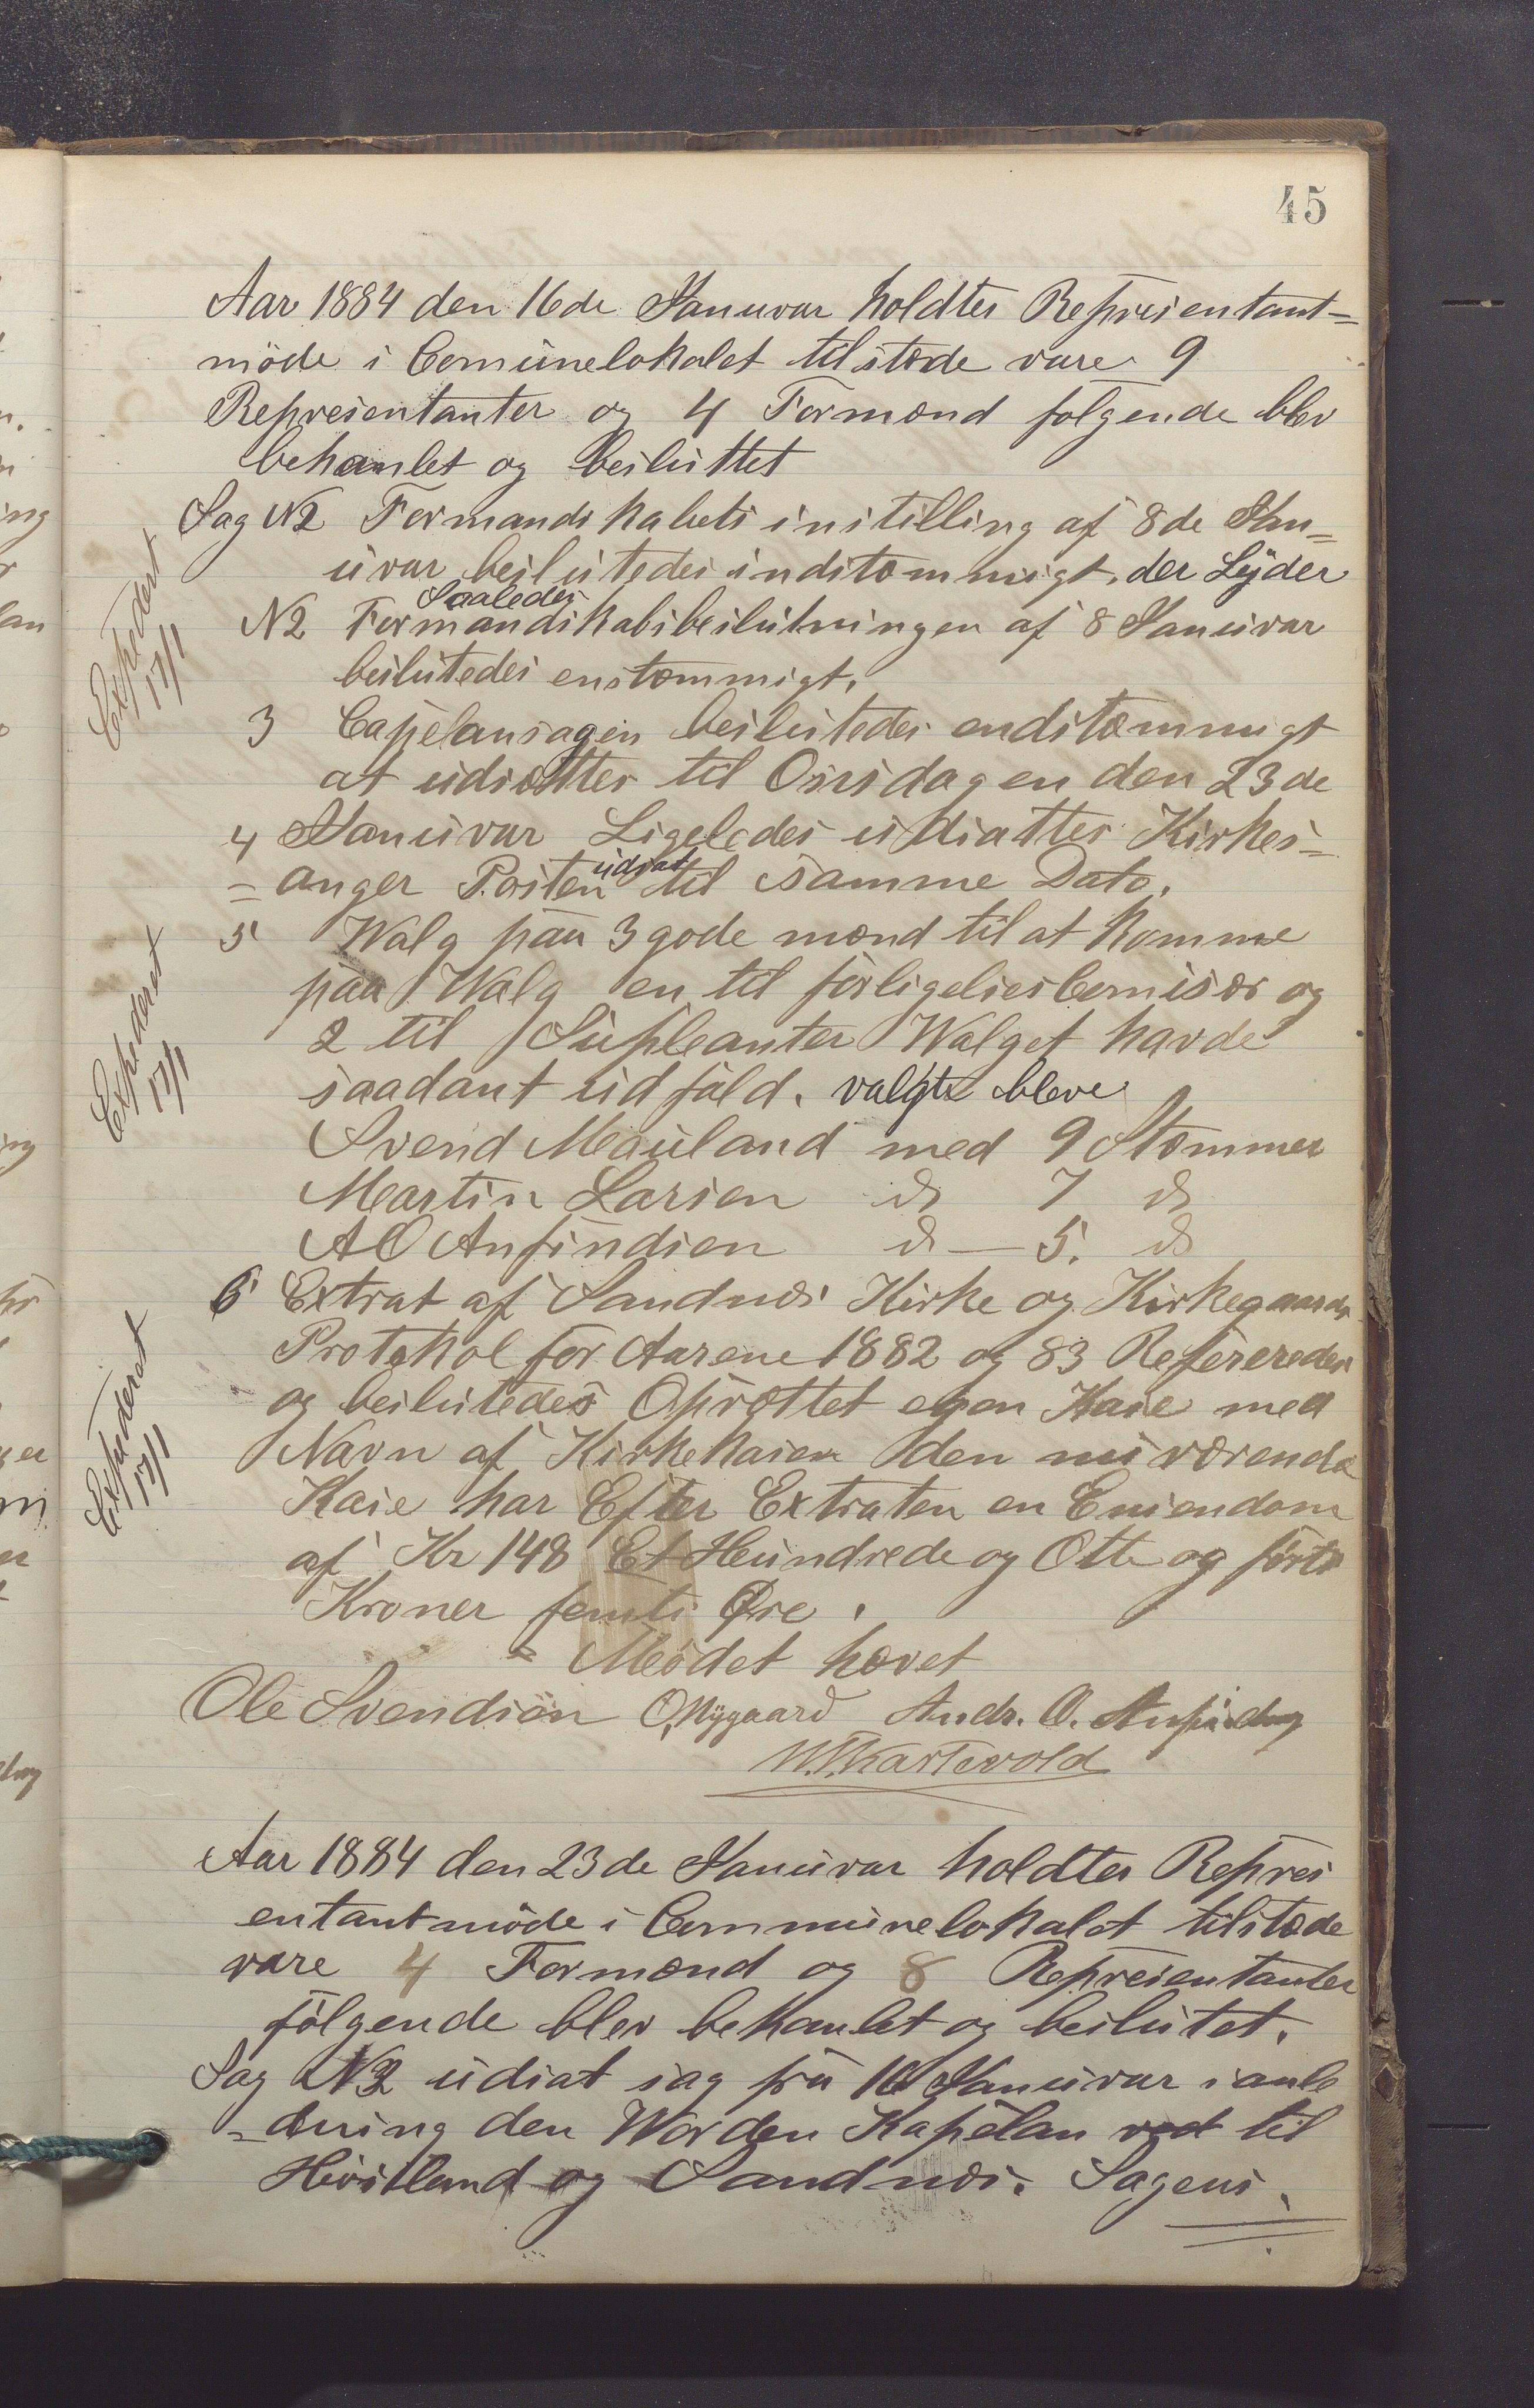 45
Aar 1884 den 16de Januvar holdtes Represientant=
möde i Comunelokalet tilstede vare 9
Represientanter og 4 Formænd følgende blev
behanlet og besluttet
Sag N2 Formandskabets instilling af 8de Jan=
uvar beslutedes indstæmmigt, der Lyder
Saaledes
N2 Formandskabsbeslutningen af 8 Januvar
beslutedes enstæmmigt.
Expedert
17/1
3 Capelansagen beslutedes endstæmmigt
at udsættes til Onsdagen den 23de
4 Januvar Ligeledes udsattes Kirkes=
udsat
=anger Posten til samme Dato.
5 Walg paa 3 gode mænd til at komme
paa Walg en til forligelsesComisær og
2 til Supleanter Walget havde
saadant udfald. valgte bleve
Expederet
17/1
Svend Mauland med 9 Stæmmer
Martin Larsen do 7 do
A O Anfindsen do — 5. do
6 Extrat af Sandnæs Kirke og Kirkegaards
Protokol for Aarene 1882 og 83 Refereredes
og beslutedes Oprættet egen Kase med
Navn af Kirkekasen den nuværende
Kase har Efter Extraten en Eniendom
af Kr 148 Et Hundrede og Otte og førti
Kroner femti Øre.
Expederet
17/1
Mødet hævet
Ole Svendsen O. Nygaard Andr. O. Anfindsen
W. Skartevold
Aar 1884 den 23de Januvar holdtes Repres
entantmöde i Communelokalet tilstede
vare 4 Formænd og 8 Represientanter
følgende blev behanlet og beslutet.
Sag N3 udsat sag fra 16 Januvar i anle
=dning den Worden Kapelan ved til
Høiland og Sandnæs. Sagens